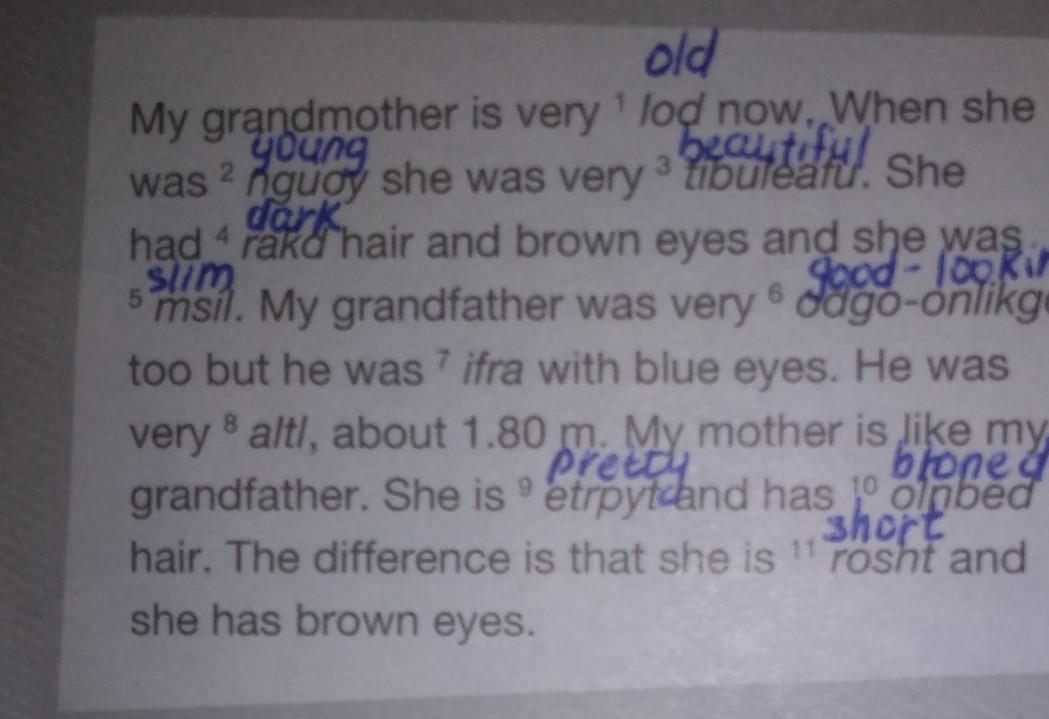 old
My grandmother is very 1 lod now. When she
young beautiful
was 2 nguoy she was very 3 tibuleafu. She
dark
had 4 rakd hair and brown eyes and she was
slim good-lookin
5 msil. My grandfather was very 6 odgo-onlikg
too but he was 7 ifra with blue eyes. He was
very 8 altl, about 1.80 m. My mother is like my
pretty bloned
grandfather. She is 9 etrpyt and has 10 olnbed
short
hair. The difference is that she is 11 rosht and
she has brown eyes.